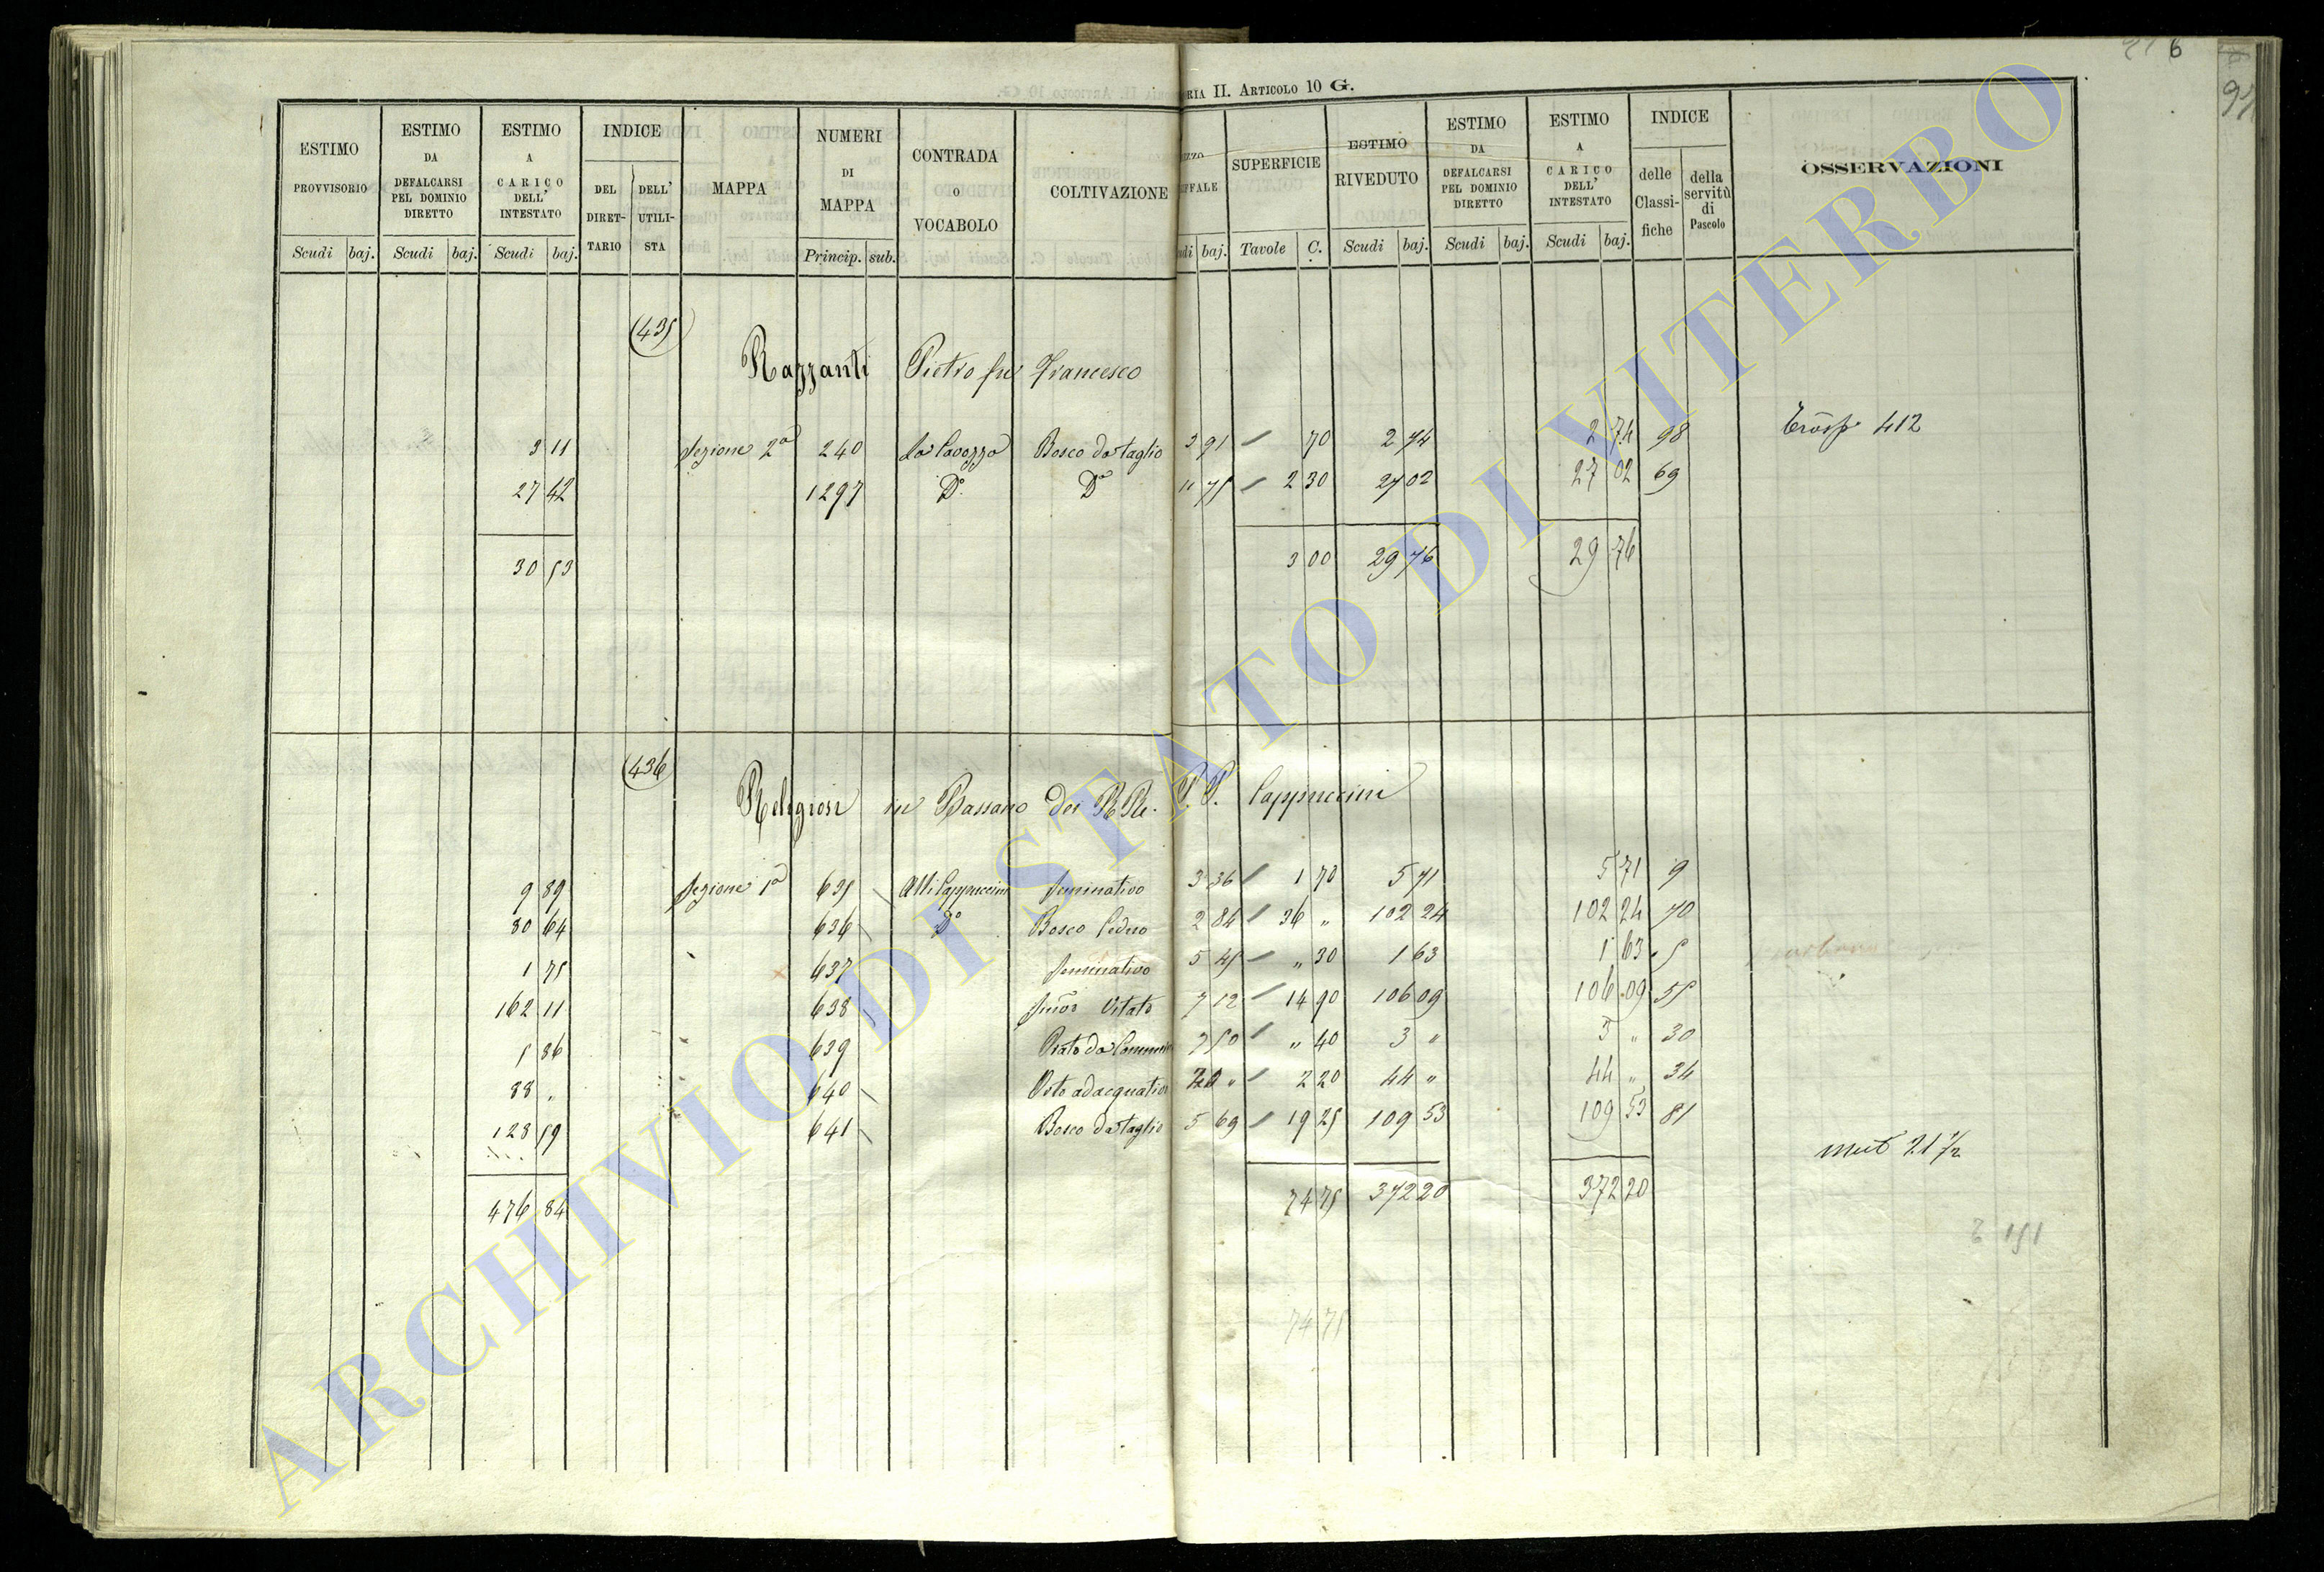 6
97
ORIA II. ARTICOLO 10 G.
ESTIMO PROVVISORIO | ESTIMO DA DEFALCARSI PEL DOMINIO DIRETTO | ESTIMO A CARICO DELL' INTESTATO | INDICE DEL DIRETTARIO | DELL' UTILISTA | MAPPA | NUMERI DI MAPPA | CONTRADA O VOCABOLO | COLTIVAZIONE | EZZO IFFALE | SUPERFICIE | ESTIMO RIVEDUTO | ESTIMO DA DEFALCARSI PEL DOMINIO DIRETTO | ESTIMO A CARICO DELL' INTESTATO | INDICE delle Classifiche | della servitù di Pascolo | OSSERVAZIONI
Scudi baj. Scudi baj. Scudi baj. Princip. sub. udi baj. Tavole C. Scudi baj. Scudi baj. Scudi baj.
(435)
Razzanti Pietro fu Francesco
3 11 Sezione 2ª 240 La Cavozza Bosco da taglio 3 91 70 2 74 2 74 98 Trasp. 412
27 42 1297 Dº Dº 11 75 2 30 27 02 27 02 69
30 53 3 00 29 76 29 76
(436)
Religiosi in Bassano dei RR. P.P. Cappuccini
9 89 Sezione 1ª 635 Alli Cappuccini Seminativo 3 36 1 70 5 71 5 71 9
80 64 636 Dº Bosco Ceduo 2 84 36 " 102 24 102 24 70
1 75 637 Seminativo 5 45 " 30 1 63 1 63 5
162 11 638 Semvo Vitato 7 12 14 90 106 09 106 09 55
5 86 639 Prato da 7 50 " 40 3 " 3 " 30
88 " 640 Orto adacquativo 20 " 2 20 44 " 44 " 34
128 59 641 Bosco da taglio 5 69 19 25 109 53 109 53 81
mut 21 1/2
476 84 74 75 372 20 372 20
151
74 75
ARCHIVIO DI STATO DI VITERBO